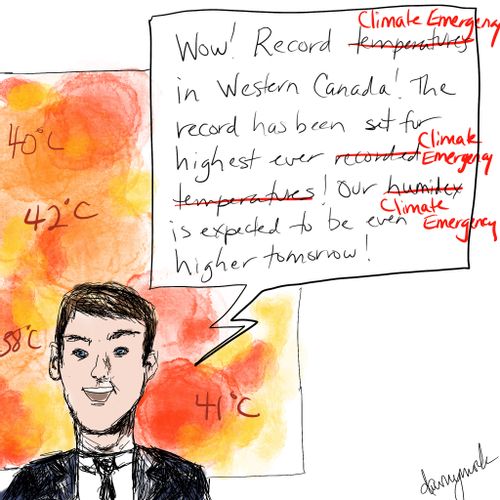 Climate Emergency
Wow! Record temperatures
in Western Canada! The
record has been set for
Climate
highest ever recorded Emergency
temperatures! Our humidex
Climate
is expected to be even Emergency
higher tomorrow!
40°C
42°C
38°C
41°C